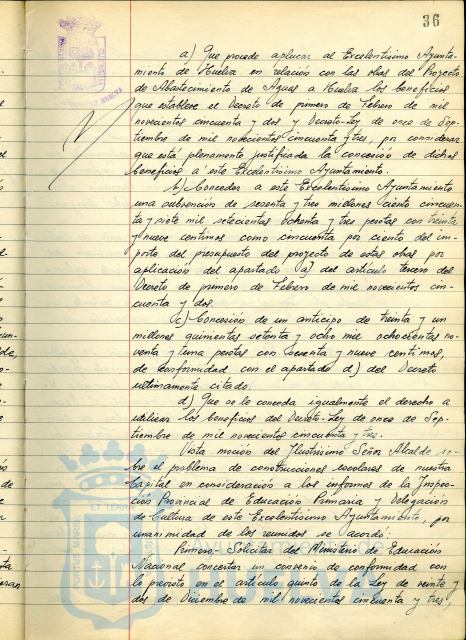 36
a) Que procede aplicar al Excelentísimo Ayunta-
miento de Huelva en relación con las obras del Proyecto
de Abastecimiento de Aguas a Huelva los beneficios
que establece el Decreto de primero de Febrero de mil
novecientos cincuenta y dos y Decreto-Ley de once de Sep-
tiembre de mil novecientos cincuenta y tres, por considerar
que está plenamente justificada la concesión de dichos
beneficios a este Excelentísimo Ayuntamiento.
b) Conceder a este Excelentísimo Ayuntamiento
una subvención de sesenta y tres millones ciento cincuen-
ta y siete mil setecientas ochenta y tres pesetas con treinta
y nueve centimos como cincuenta por ciento del im-
porte del presupuesto del proyecto de estas obras por
aplicación del apartado a) del artículo tercero del
Decreto de primero de Febrero de mil novecientos cin-
cuenta y dos.
c) Concesión de un anticipo de treinta y un
millones quinientas setenta y ocho mil ochocientas no-
venta y una pesetas con sesenta y nueve centimos,
de conformidad con el apartado d) del Decreto
ultimamente citado.
d) Que se le conceda igualmente el derecho a
utilizar los beneficios del Decreto-Ley de once de Sep-
tiembre de mil novecientos cincuenta y tres.
Vista moción del Ilustrísimo Señor Alcalde so-
bre el problema de construcciones escolares de nuestra
Capital en consideración a los informes de la Inspec-
ción Provincial de Educación Primaria y Delegación
de Cultura de este Excelentísimo Ayuntamiento, por
unanimidad de los reunidos se acordó:
Primero: Solicitar del Ministerio de Educación
Nacional concertar un convenio de conformidad con
lo previsto en el artículo quinto de la Ley de veinte y
dos de Diciembre de mil novecientos cincuenta y tres,